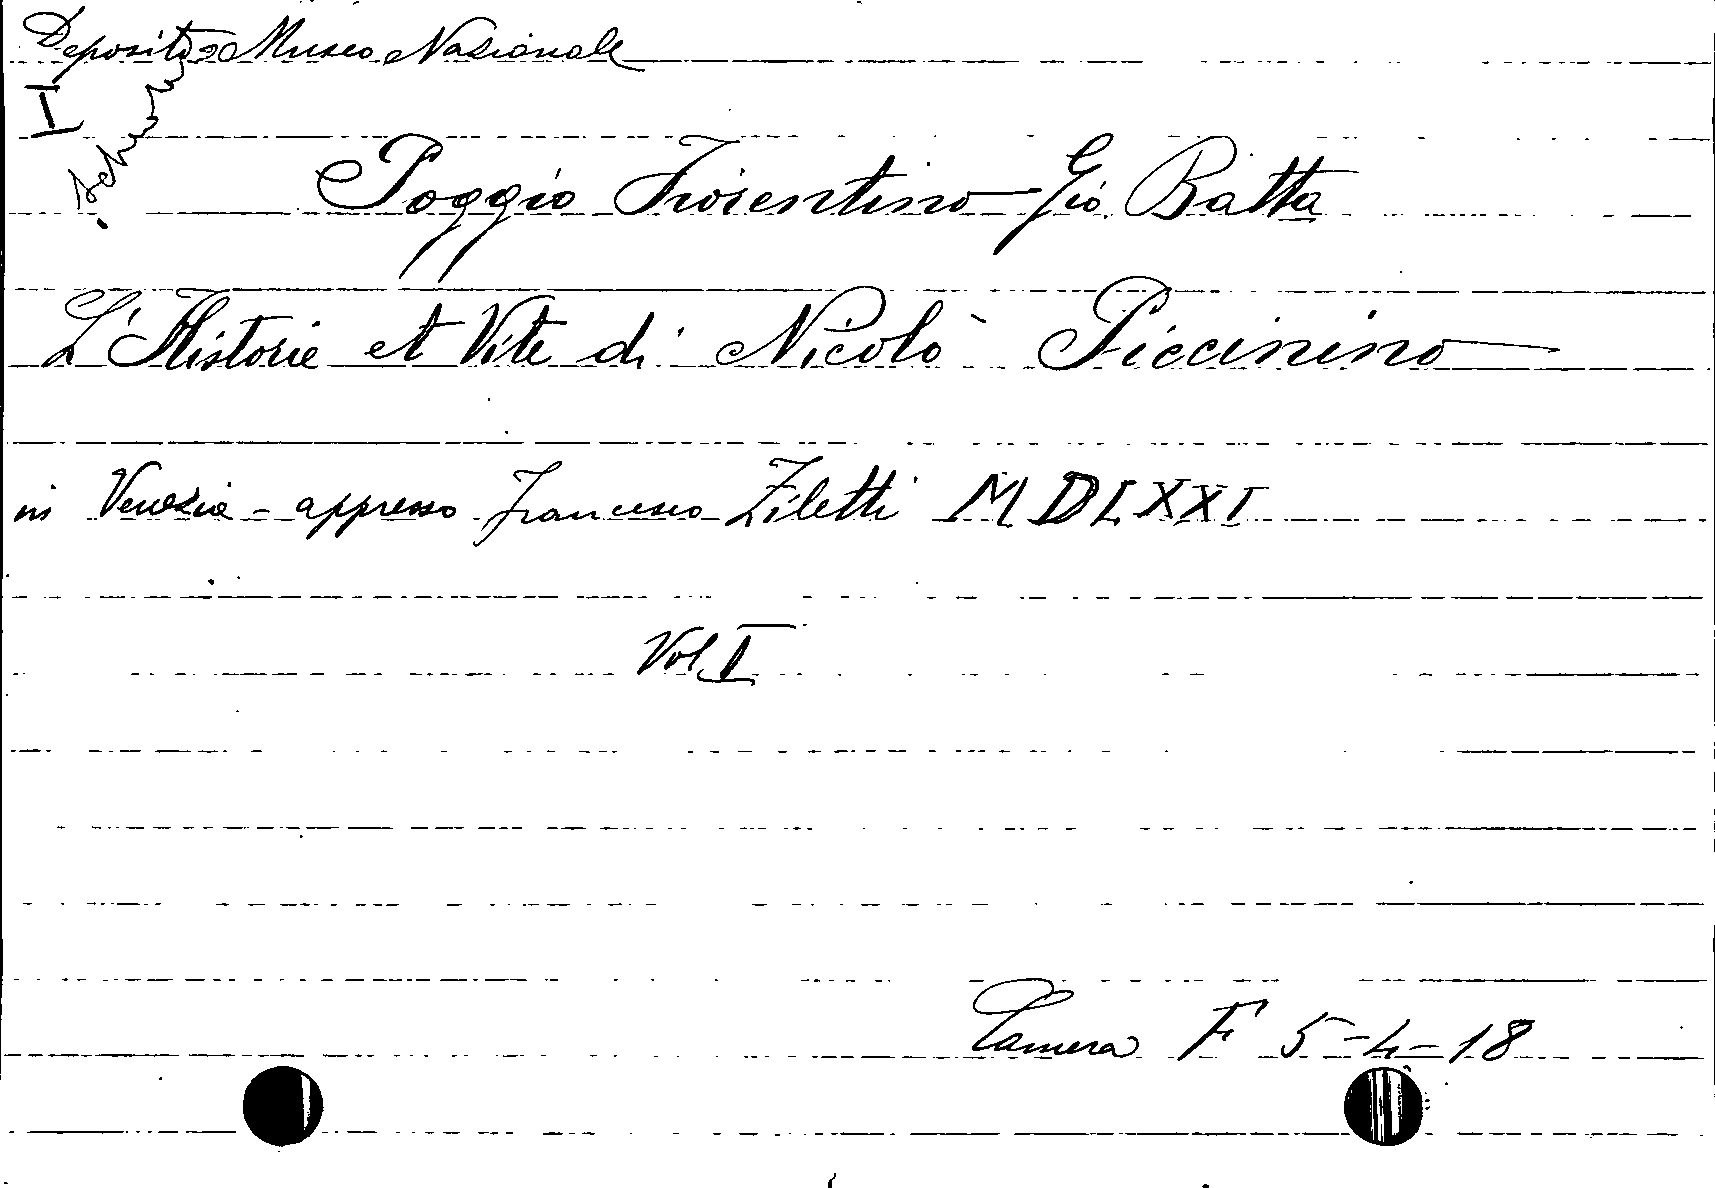 Deposito Museo Nazionale
I
Poggio Fiorentino Gió Batta
L'Historie et Vite di Nicolò Piccinino
in Venezia - appresso Francesco Ziletti MDLXXI
Vol I
Camera F 5-4-18